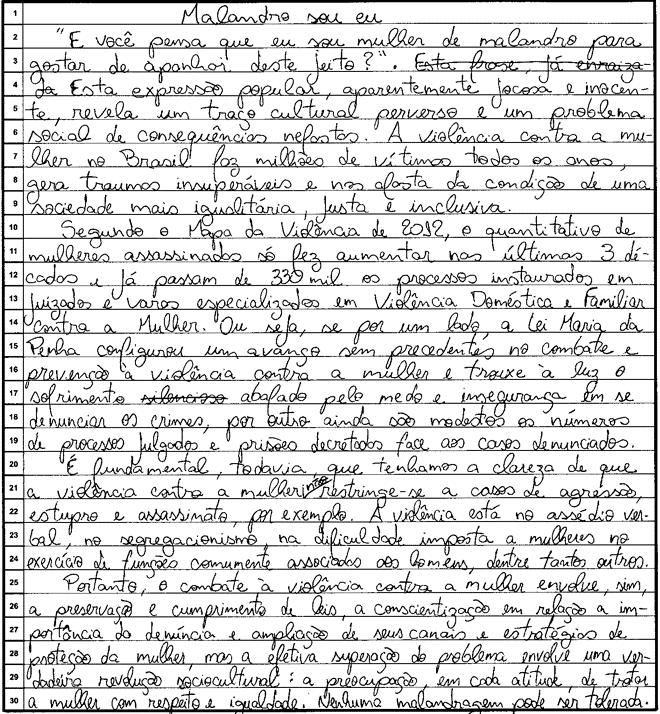 1 Malandro sou eu
2 "E você pensa que eu sou mulher de malandro para
3 gostar de apanhar deste jeito?". Esta frase, já enraiza-
4 da Esta expressão popular, aparentemente jocosa e inocen-
5 te, revela um traço cultural perverso e um problema
6 social de consequências nefastas. A violência contra a mu-
7 lher no Brasil faz milhões de vítimas todos os anos,
8 gera traumas insuperáveis e nos afasta da condição de uma
9 sociedade mais igualitária, justa e inclusiva.
10 Segundo o Mapa da Violência de 2012, o quantitativo de
11 mulheres assassinadas só fez aumentar nas últimas 3 dé-
12 cadas e já passam de 330 mil os processos instaurados em
13 juizados e varas especializados em Violência Doméstica e Familiar
14 contra a Mulher. Ou seja, se por um lado, a Lei Maria da
15 Penha configurou um avanço sem precedentes no combate e
16 prevenção à violência contra a mulher e trouxe à luz o
17 sofrimento silencioso abafado pelo medo e insegurança em se
18 denunciar os crimes, por outro ainda são modestos os números
19 de processos julgados e prisões decretadas face aos casos denunciados.
20 É fundamental, todavia, que tenhamos a clareza de que
21 a violência contra a mulher não restringe-se a casos de agressão,
22 estupro e assassinato, por exemplo. A violência está no assédio ver-
23 bal, no segregacionismo na dificuldade imposta a mulheres no
24 exercício de funções comumente associadas aos homens, dentre tantos outros.
25 Portanto, o combate à violência contra a mulher envolve, sim,
26 a preservação e cumprimento de leis, a conscientização em relação a im-
27 portância da denúncia e ampliação de seus canais e estratégias de
28 proteção da mulher, mas a efetiva superação do problema envolve uma ver-
29 dadeira revolução sociocultural: a preocupação, em cada atitude, de tratar
30 a mulher com respeito e igualdade. Nenhuma malandragem pode ser tolerada.